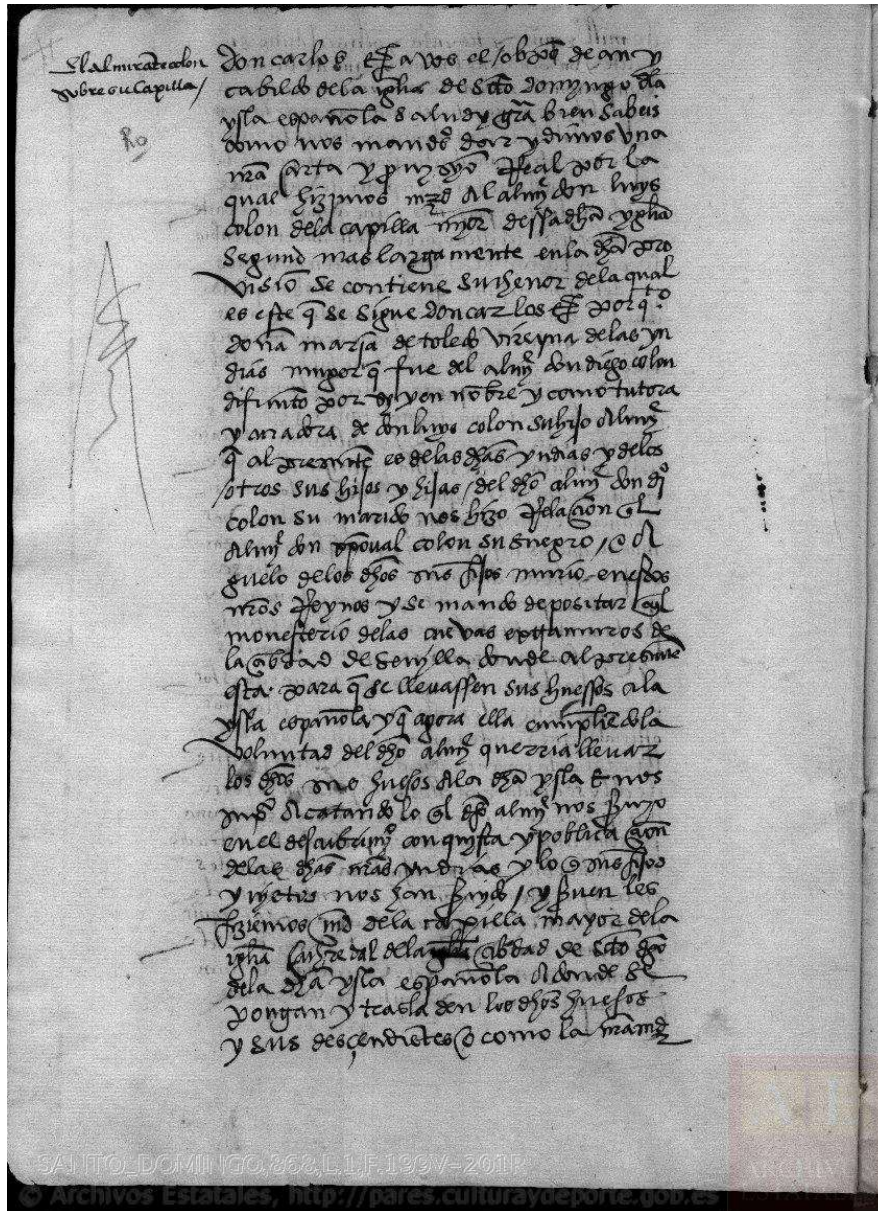 El almirante colon
sobre su Capilla /
don carlos &c a vos el obpo dean y
cabildo de la yglia de scto domingo dla
ysla española salud y gra bien sabeis
como nos mandos dar y dimos una
nra carta y prouysyō Real por la
qual hizimos mrd al almyte don luys
colon de la capilla myor dessa dha yglia
segund mas largamente en la dha pro
visiō se contiene su thenor de la qual
es este q se sigue don carlos &c por qto
doña maria de toledo vireyna de las yn
dias muger q fue del almyte don diego colon
difunto por sy y en nōbre y como tutora
y curadora de don luys colon su hijo Almyte
q al presente es de las dhas yndias y de los
otros sus hijos y hijas / del dho almyte don dio
colon su marido nos hizo Relacion ql
Almyte don xpoval colon su suegro / e a
guelo de los dhos sus fijos murio en estos
nros Reynos y se mando depositar en el
monesterio de las cuevas extramuros de
la cibdad de sevylla donde al presente
esta para q se llevassen sus huessos a la
ysla española y q agora ella cumpliēdo la
voluntad del dho almyte querria llevar
los dhos sus huesos a la dha ysla & nos
supco Acatando lo ql dho almyte nos siruyo
en el descubrimyo conquysta y poblacion
de las dhas nras yndias y lo q sus fijos
y nyetos nos han servydo / y syruen les
fiziesemos md de la capilla mayor de la
yglia Cathredal de la cibdad de scto dgo
de la dha ysla española Adonde se
pongan y trasladen los dhos huesos
y sus desçendientes e como la nra md
SANTO_DOMINGO,868,L.1,F.199V-201R
© Archivos Estatales, http://pares.culturaydeporte.gob.es